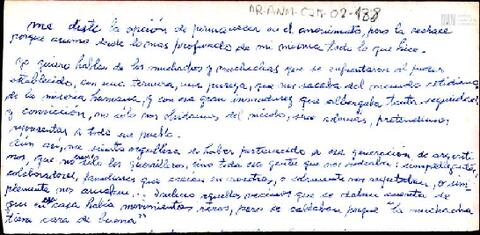 AR-ANM-CJM-02-138
me diste la opción de permanecer en el anonimato, pero la rechacé
porque asumo desde lo más profundo de mi misma todo lo que hice.
Yo quiero hablar de los muchachos y muchachas que se enfrentaron al poder
establecido, con una ternura, una pureza, que nos sacaba del mundo cotidiano
de la miseria humana, y con esa gran inmadurez que albergaba tanta seguridad
y convicción, no sólo nos olvidamos del miedo, sino además, pretendimos
representar a todo un pueblo.
Aún así, me siento orgullosa de haber pertenecido a esa generación de argenti
nos, que no éramos sólo guerrilleros, sino toda esa gente que nos rodeaba: simpatizantes,
colaboradores, familiares que creían en nosotros, o solamente nos respetaban, o sim
plemente nos amaban... Incluso aquellos vecinos que se daban cuenta de
que en esa casa había movimientos raros, pero se callaban porque "la muchacha
tiene cara de buena"